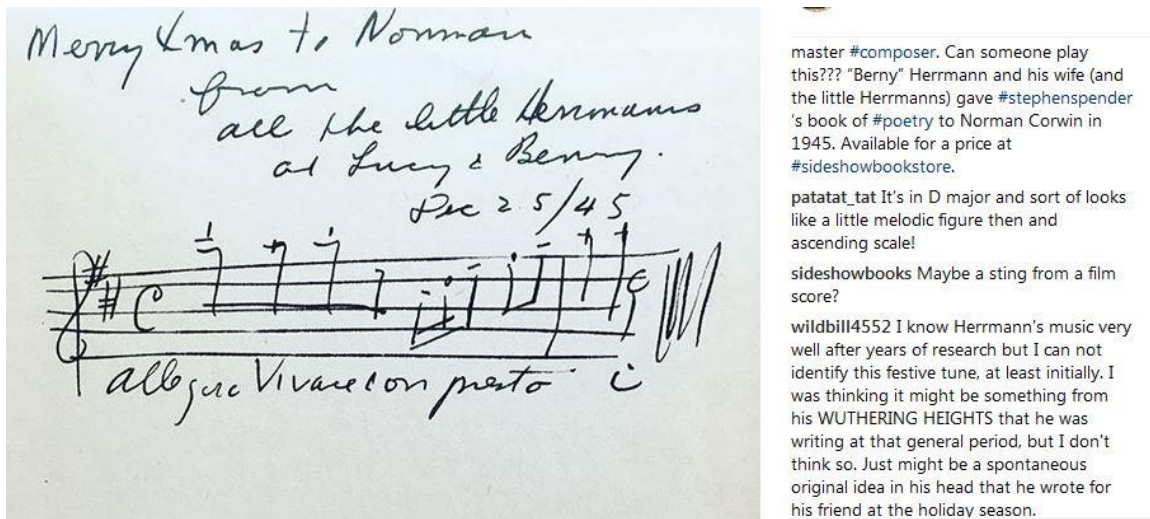 Merry Xmas to Norman
from
all the little Herrmanns
at Lucy & Benny.
Dec 25/45
Allegro Vivace con presto
master #composer. Can someone play
this??? "Berny" Herrmann and his wife (and
the little Herrmanns) gave #stephenspender
's book of #poetry to Norman Corwin in
1945. Available for a price at
#sideshowbookstore.
patatat_tat It's in D major and sort of looks
like a little melodic figure then and
ascending scale!
sideshowbooks Maybe a sting from a film
score?
wildbill4552 I know Herrmann's music very
well after years of research but I can not
identify this festive tune, at least initially. I
was thinking it might be something from
his WUTHERING HEIGHTS that he was
writing at that general period, but I don't
think so. Just might be a spontaneous
original idea in his head that he wrote for
his friend at the holiday season.